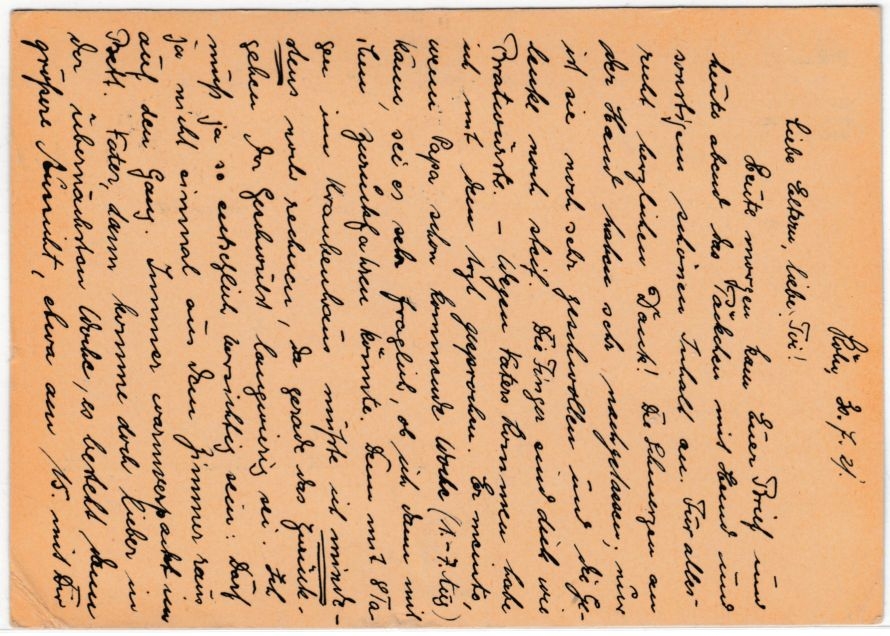 Köln, 30. 7. 21
Liebe Eltern, liebe
Heute morgen kam Euer Brief und
heute abend das Päckchen mit Hemd und
sonstigem schönen Inhalt an. Für alles
recht herzlichen Dank! Die Schmerzen an
der Hand haben sehr nachgelassen; nur
ist sie noch sehr geschwollen und die Ge-
lenke noch steif. Die Finger sind dick wie
Bratwürste. – Wegen Vaters Kommen habe
ich mit dem gesprochen. Er meinte,
wenn Papa schon kommende Woche (1.-7. Aug)
käme, sei es sehr fraglich, ob ich dann mit
ihm zurückfahren könnte. Denn mit 8 Ta-
gen im Krankenhaus müsste ich minde-
stens noch rechnen, da gerade das Zurück-
gehen der Geschwulst langwierig sei. Ich
muß ja so entsetzlich vorsichtig sein: Darf
ja nicht einmal aus dem Zimmer raus
auf den Gang. Immer warmverpackt im
Bett. Vater, dann komme doch lieber in
der übernächsten Woche, es besteht dann
größere Aussicht, etwa am 15. mit Dir